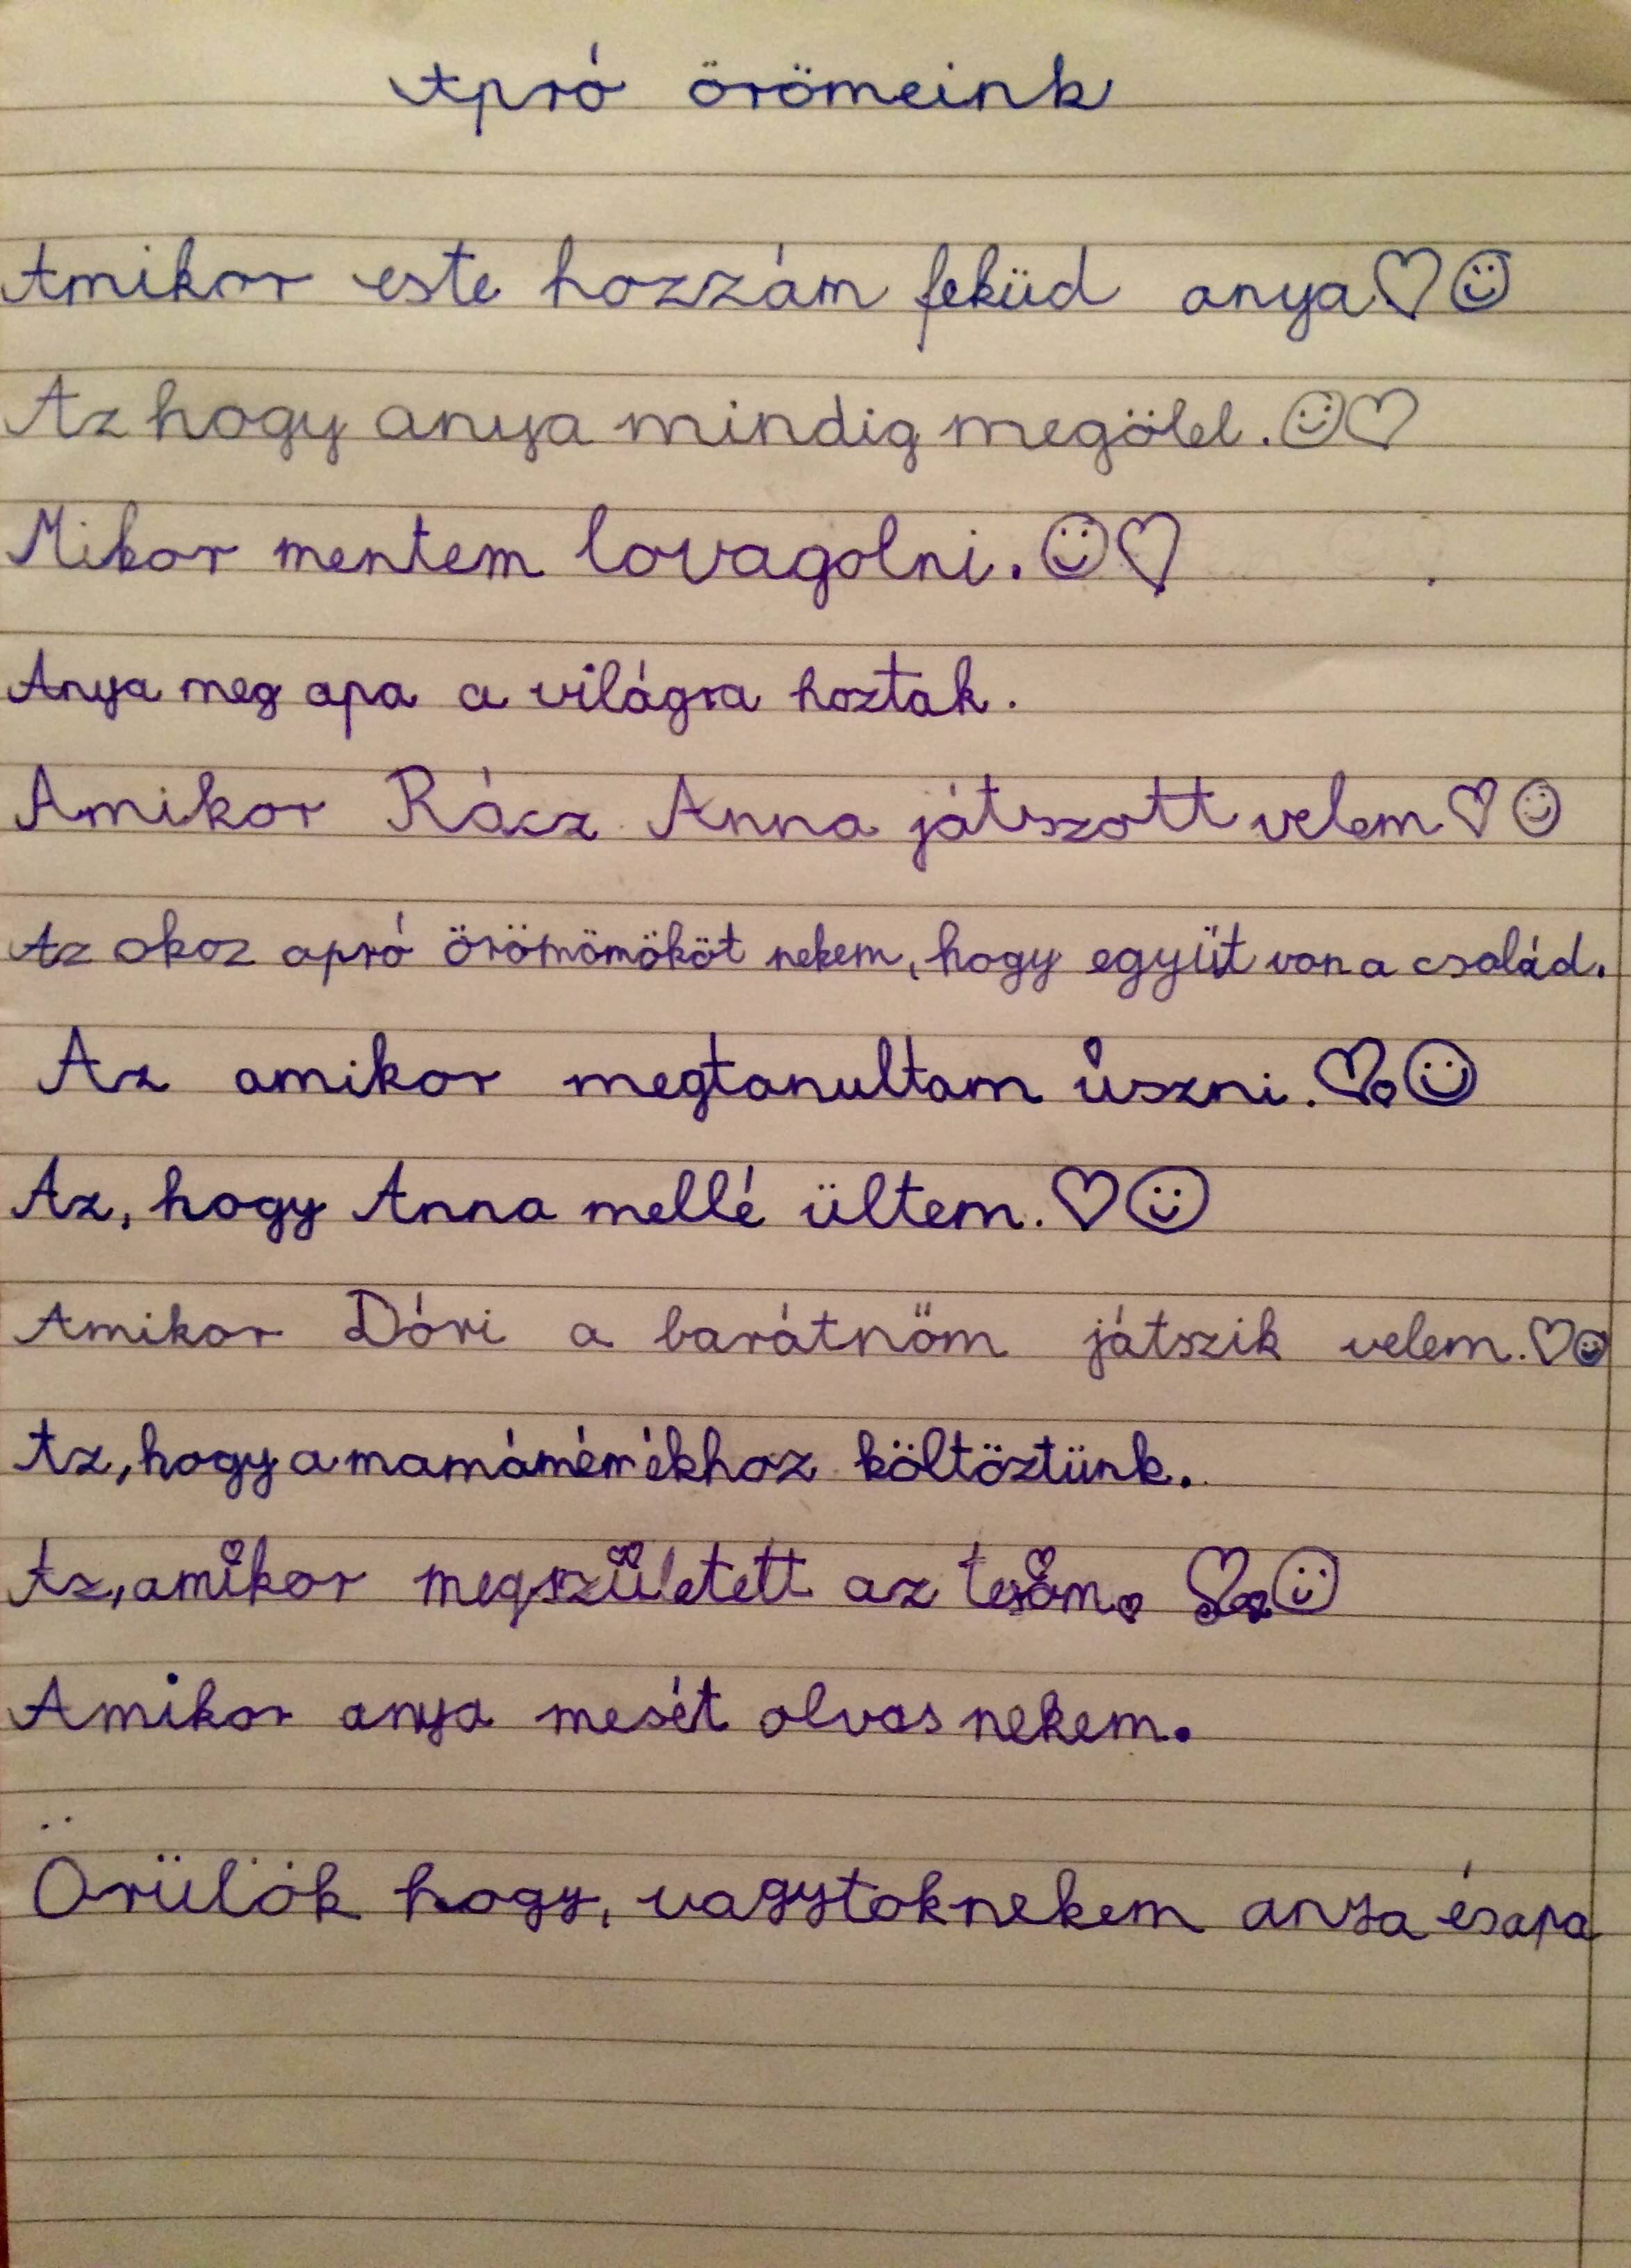 Apró örömeink
Amikor este hozzám feküd anya♡☺
Az hogy anya mindig megölel.☺♡
Mikor mentem lovagolni.☺♡
Anya meg apa a világra hoztak.
Amikor Rácz Anna játszott velem♡☺
Az okoz apró örömömököt nekem, hogy együt van a család.
Az amikor megtanultam úszni.♡☺
Az, hogy Anna mellé ültem.♡☺
Amikor Dóri a barátnőm játszik velem.♡☺
Az, hogy a költöztünk.
Az, amikor megszületett az tesóm. ♡☺
Amikor anya mesét olvas nekem.
Örülök hogy, vagytok nekem anya és apa